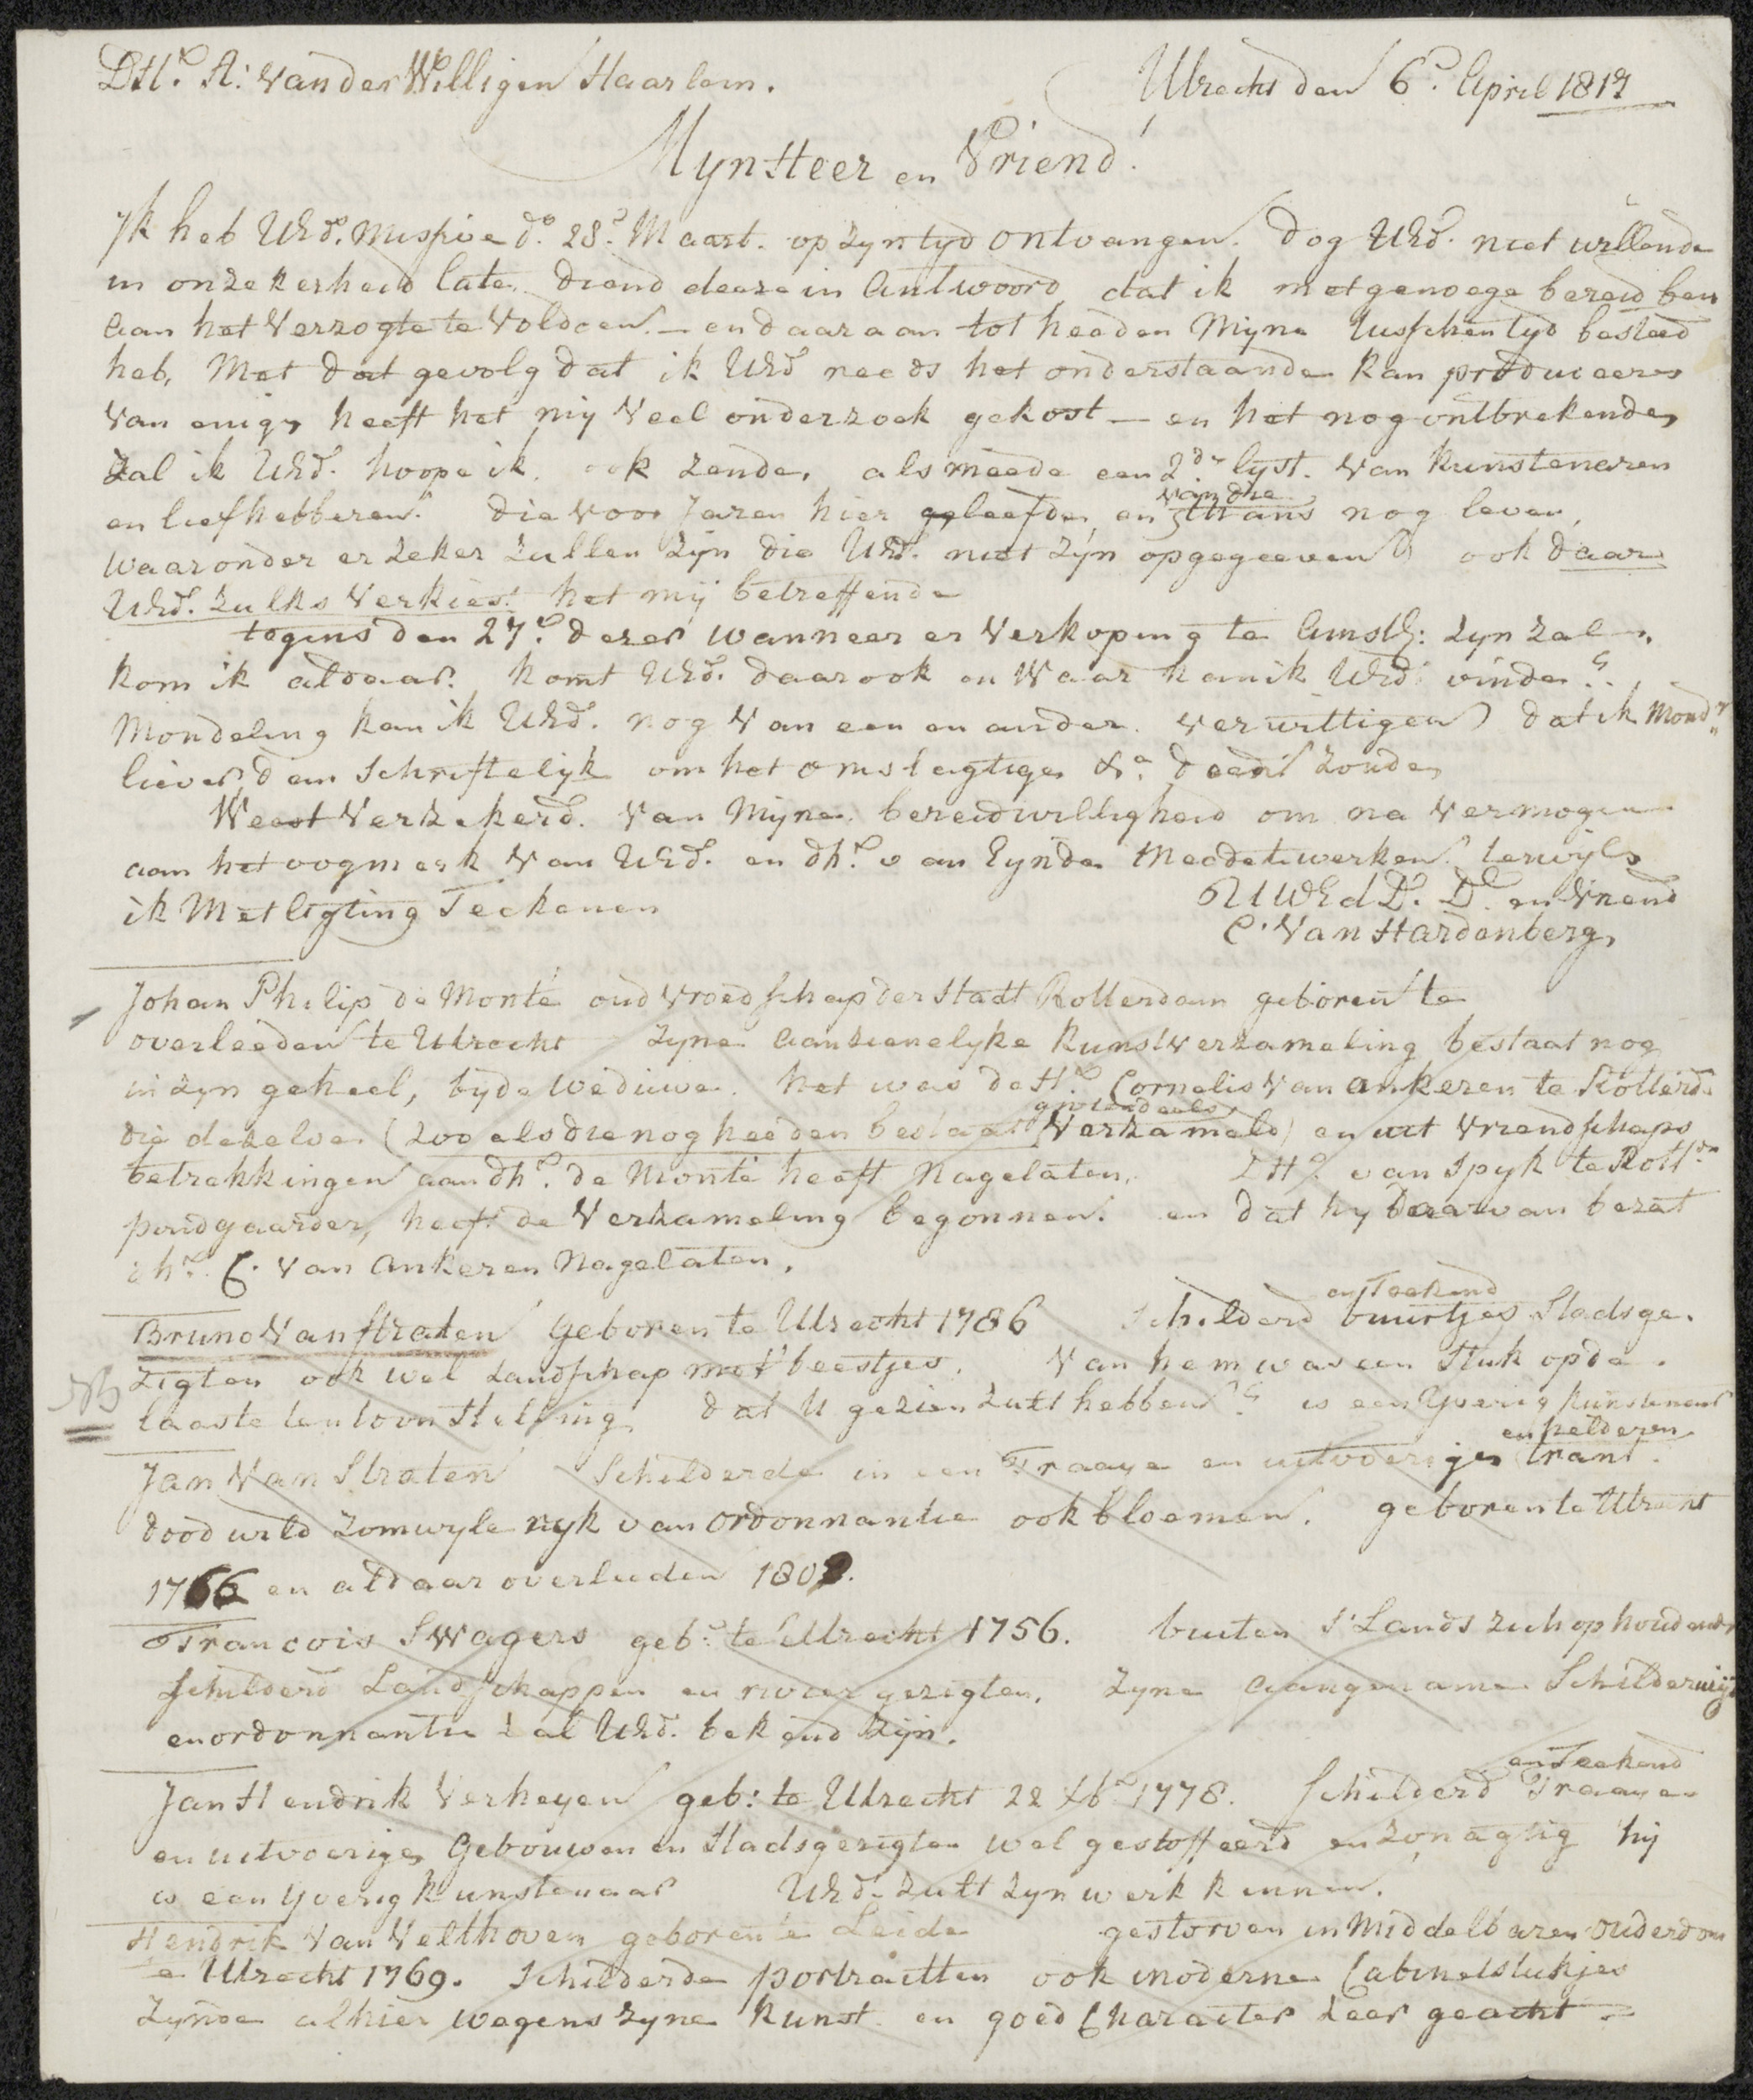 DH.r A: van der Willigen Haarlem.
Utrecht den 6.e April 1817
Mijn Heer en Vriend!
Ik heb UEd. Missive d.o 28.e Maart. op zyn tyd ontvangen. dog UEd. niet willende
in onzekerheid late, diend deeze in Antwoord, dat ik met genoege bereid ben
aan het Verzogte te Voldoen. — en daar aan tot heeden Mijne tusschen tyd besteed
heb, Met dat gevolg dat ik UEd reeds het onderstaande kan produceeren
Van enige heeft het mij Veel onderzoek gekost — en het nog ontbrekende,
Zal ik UEd. hoope ik ook zende, als meede een 2.de lyst. van Kunstenaren
en liefhebberen. die voor Jaren hier geleefde, en van die thans nog leven,
waaronder er zeker zullen zijn die UEd. niet zijn opgegeeven ook daar
UEd. zulks Verkiest. het mij betreffende
tegens den 27.e dezer wanneer er Verkoping te Amst: zyn zal.
kom ik aldaar. komt UEd. daar ook en Waar kan ik UEd vinde?
Mondeling kan ik UEd. nog Van een en ander verwittigen dat ik Mond.
liever dan Schriftelijk om het omslagtige &a. doen zoude,
Weest Verzekerd. Van Mijne bereidwilligheid om na Vermogen
aan het oogmerk Van UEd. en dh.r van Eynde Meede te werken. terwyl
ik Met agting Teekenen
UWEd D.r D.r en Vriend
C. Van Hardenberg,
Johan Philip de Monté oud Vroedschap der Stadt Rotterdam geboren te
overleeden te Utrecht Zyne aanzienelyke Kunstverzameling bestaat nog
in zyn geheel, by de Weduwe. het was de H.r Cornelis Van Ankeren te Rotterd.
die dezelve (zoo als die nog heeden bestaat grotendeels Verzameld) en uit Vriendschaps
betrekkingen aan dh.r de Monté heeft Nagelaten. DH.r van Spyk te Rott.
pondgaarder, heeft de Verzameling begonnen. en dat hy daar van bezat
dh.r C. Van Ankeren Nagelaten.
Bruno Van Straten Geboren te Utrecht 1786 Schilderd en Teekend buurtjes Stadsge.
zigten ook wel Landschap met beestjes. Van hem was een Stuk op de
NB laaste tentoonstelling dat U gezien zult hebben? is een Yverig kunstenaar
Jan Van Straten Schilderde in een Fraaye en uitvoerige en helderen trant.
dood wild zomwyle ryk van ordonnantie ook bloemen. geboren te Utrecht
1766 en aldaar overleeden 1808.
Francois Swagers geb: te Utrecht 1756. buiten S'Lands zich ophoudende
Schilderd Landschappen en rivier gezigten. Zyne aangename Schilderwijs
en ordonnantie zal UEd. bekend zijn.
Jan Hendrik Verheyen geb: te Utrecht 22 Xb.r 1778. Schilderd en Teekend Fraaye
en uitvoerige Gebouwen en Stadsgezigten wel gestoffeerd en zonagtig hij
is een Yverig kunstenaar UEd. zult zyn werk kennen.
Hendrik Van Velthoven geboren te Leide gestorven in Middelbaren ouderdom
te Utrecht 1769. Schilderde portraitten ook moderne Cabinetstukjes
zynde alhier wegens zyne Kunst en goed Character zeer geacht